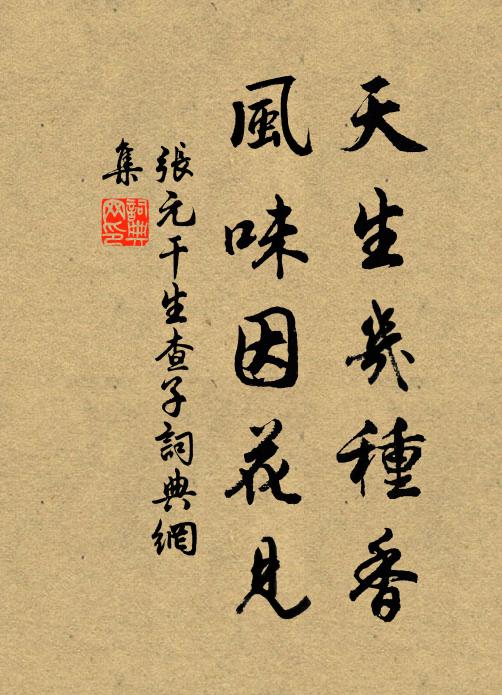 天生幾種香
風味因花見
張元干生查子詞典網
集
詞典
网印